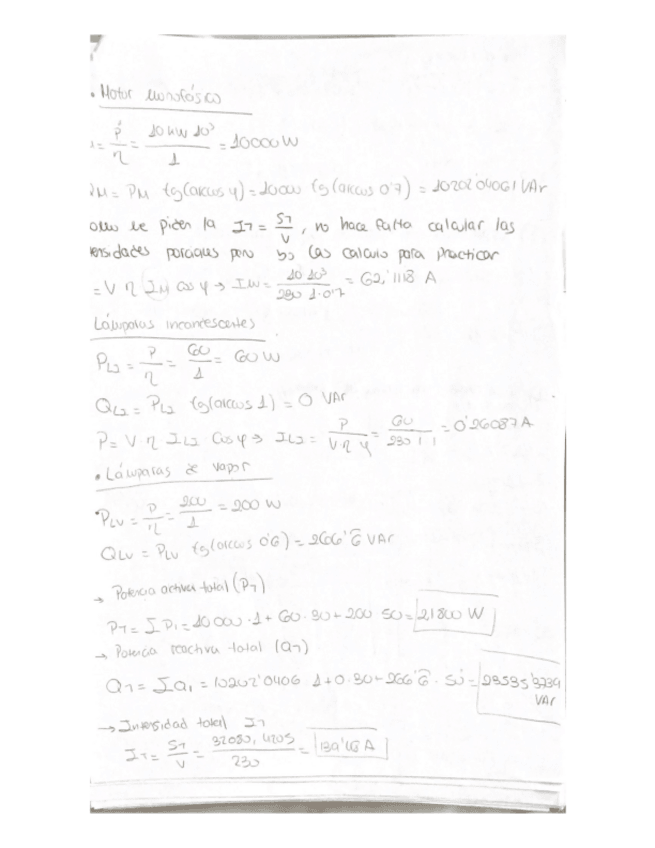 • Motor monofásico
= P/η = 10 kW 10³/1 = 10000 W
QM = PM tg(arccos φ) = 10000 tg(arccos 0'7) = 10202'04061 VAr
omo me piden la IT = ST/V, no hace falta calcular las
ensidades parciales pero yo las calculo para practicar
= V η IM cos φ → IM = 10 10³/230 1·0'7 = 62,1118 A
Lámparas incandescentes
PL2 = P/η = 60/1 = 60 W
QL2 = PL2 tg(arccos 1) = 0 VAr
P = V η IL2 cos φ → IL2 = P/V η φ = 60/230 1 1 = 0'26087 A
• Lámparas de vapor
PLV = P/η = 200/1 = 200 W
QLV = PLV tg(arccos 0'6) = 266'6 VAr
→ Potencia activa total (PT)
PT = Σ Pi = 10000 · 1 + 60 · 30 + 200 50 = 21800 W
→ Potencia reactiva total (QT)
QT = ΣQi = 10202'0406 1 + 0·30 + 266'6 · 50 = 23535'3739
VAr
→ Intensidad total IT
IT = ST/V = 32080,4205/230 = 139'48 A